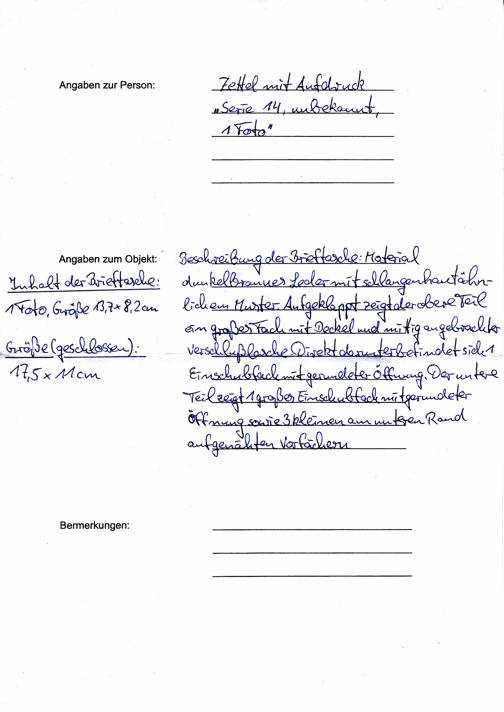 Angaben zur Person:
Zettel mit Aufdruck
"Serie 14, unbekannt,
1 Foto"
Angaben zum Objekt:
Inhalt der Brieftasche:
1 Foto, Größe 13,7 x 8,2 cm
Größe (geschlossen):
17,5 x 11 cm
Beschreibung der Brieftasche: Material
dunkelbraunes Leder mit schlangenhautähn-
lichem Muster. Aufgeklappt zeigt der obere Teil
ein großes Fach mit Deckel und mittig angebrachter
Verschlußlasche Direkt darunter befindet sich 1
Einschubfach mit gerundeter Öffnung. Der untere
Teil zeigt 1 großes Einschubfach mit gerundeter
Öffnung sowie 3 kleinen am unteren Rand
aufgenähten Vorfächern
Bermerkungen: